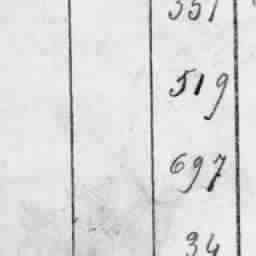 551
519
697
34